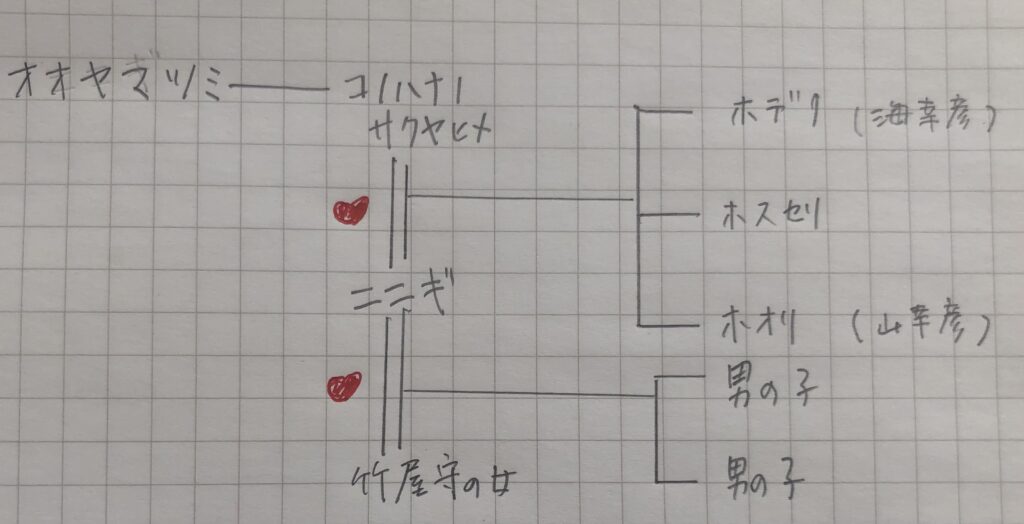 オオヤマヅミ
コノハナノ
サクヤヒメ
ホデリ (海幸彦)
ホスセリ
ニニギ
ホオリ (山幸彦)
男の子
竹屋守の女
男の子